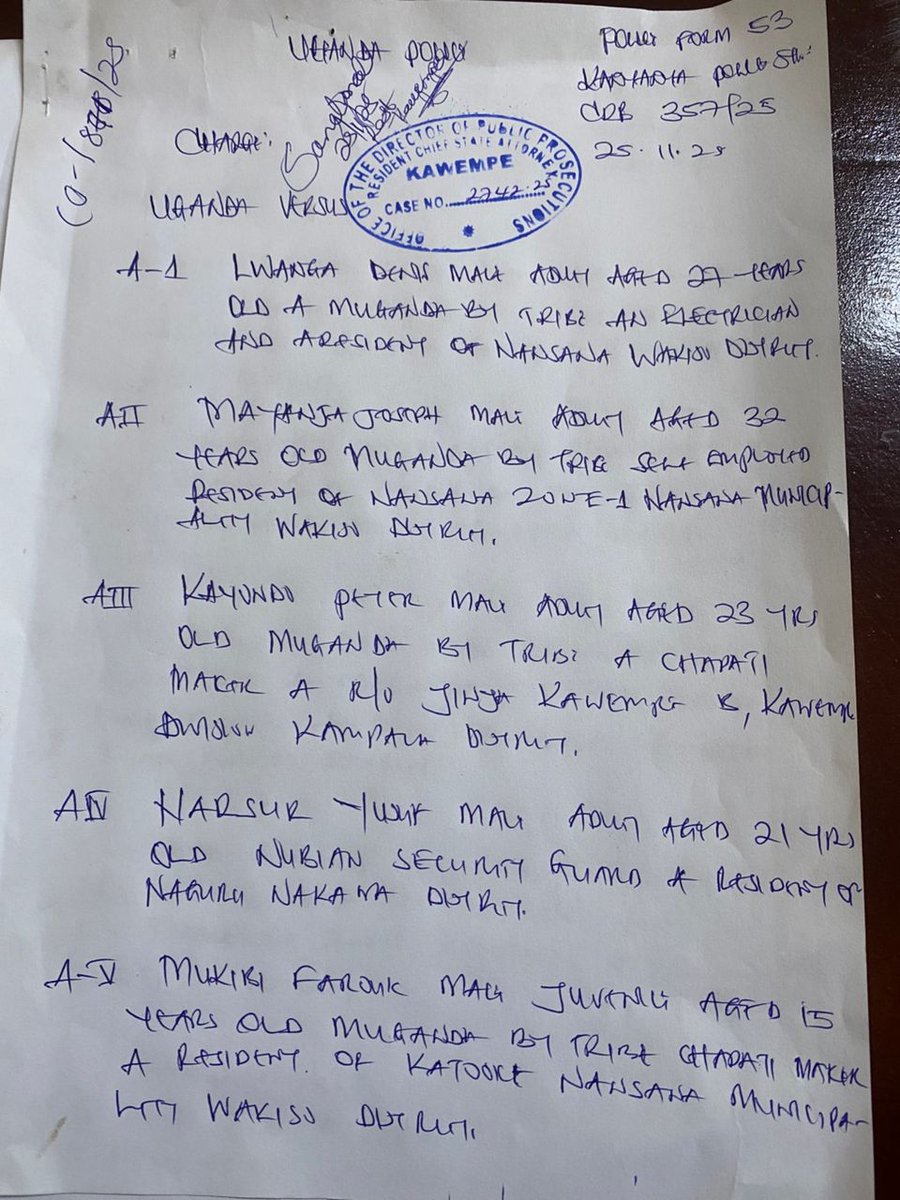 UGANDA POLICE
POLICE FORM 53
POLICE STN:
CRB 357/25
25.11.25
CHARGE:
OFFICE OF THE DIRECTOR OF PUBLIC PROSECUTIONS
RESIDENT CHIEF STATE ATTORNEY
KAWEMPE
CASE NO. 2742.25
UGANDA VERSUS
A-1 LWANGA DENIS MALE ADULT AGED 27 YEARS
OLD A MUGANDA BY TRIBE AN ELECTRICIAN
AND A RESIDENT OF NANSANA WAKISO DISTRICT.
AII MAYANJA JOSEPH MALE ADULT AGED 32
YEARS OLD MUGANDA BY TRIBE SELF EMPLOYED
RESIDENT OF NANSANA ZONE-1 NANSANA MUNICIP-
ALITY WAKISO DISTRICT.
AIII KAYONDO PETER MALE ADULT AGED 23 YRS
OLD MUGANDA BY TRIBE A CHAPATI
MAKER A R/O JINJA KAWEMPE B, KAWEMPE
DIVISION KAMPALA DISTRICT.
AIV NARSUR YUSUF MALE ADULT AGED 21 YRS
OLD NUBIAN SECURITY GUARD A RESIDENT OF
NAGURU NAKAWA DISTRICT.
A-V MUKIBI FAROUK MALE JUVENILE AGED 15
YEARS OLD MUGANDA BY TRIBE CHAPATI MAKER
A RESIDENT OF KATOOKE NANSANA MUNICIPA-
LITY WAKISO DISTRICT.